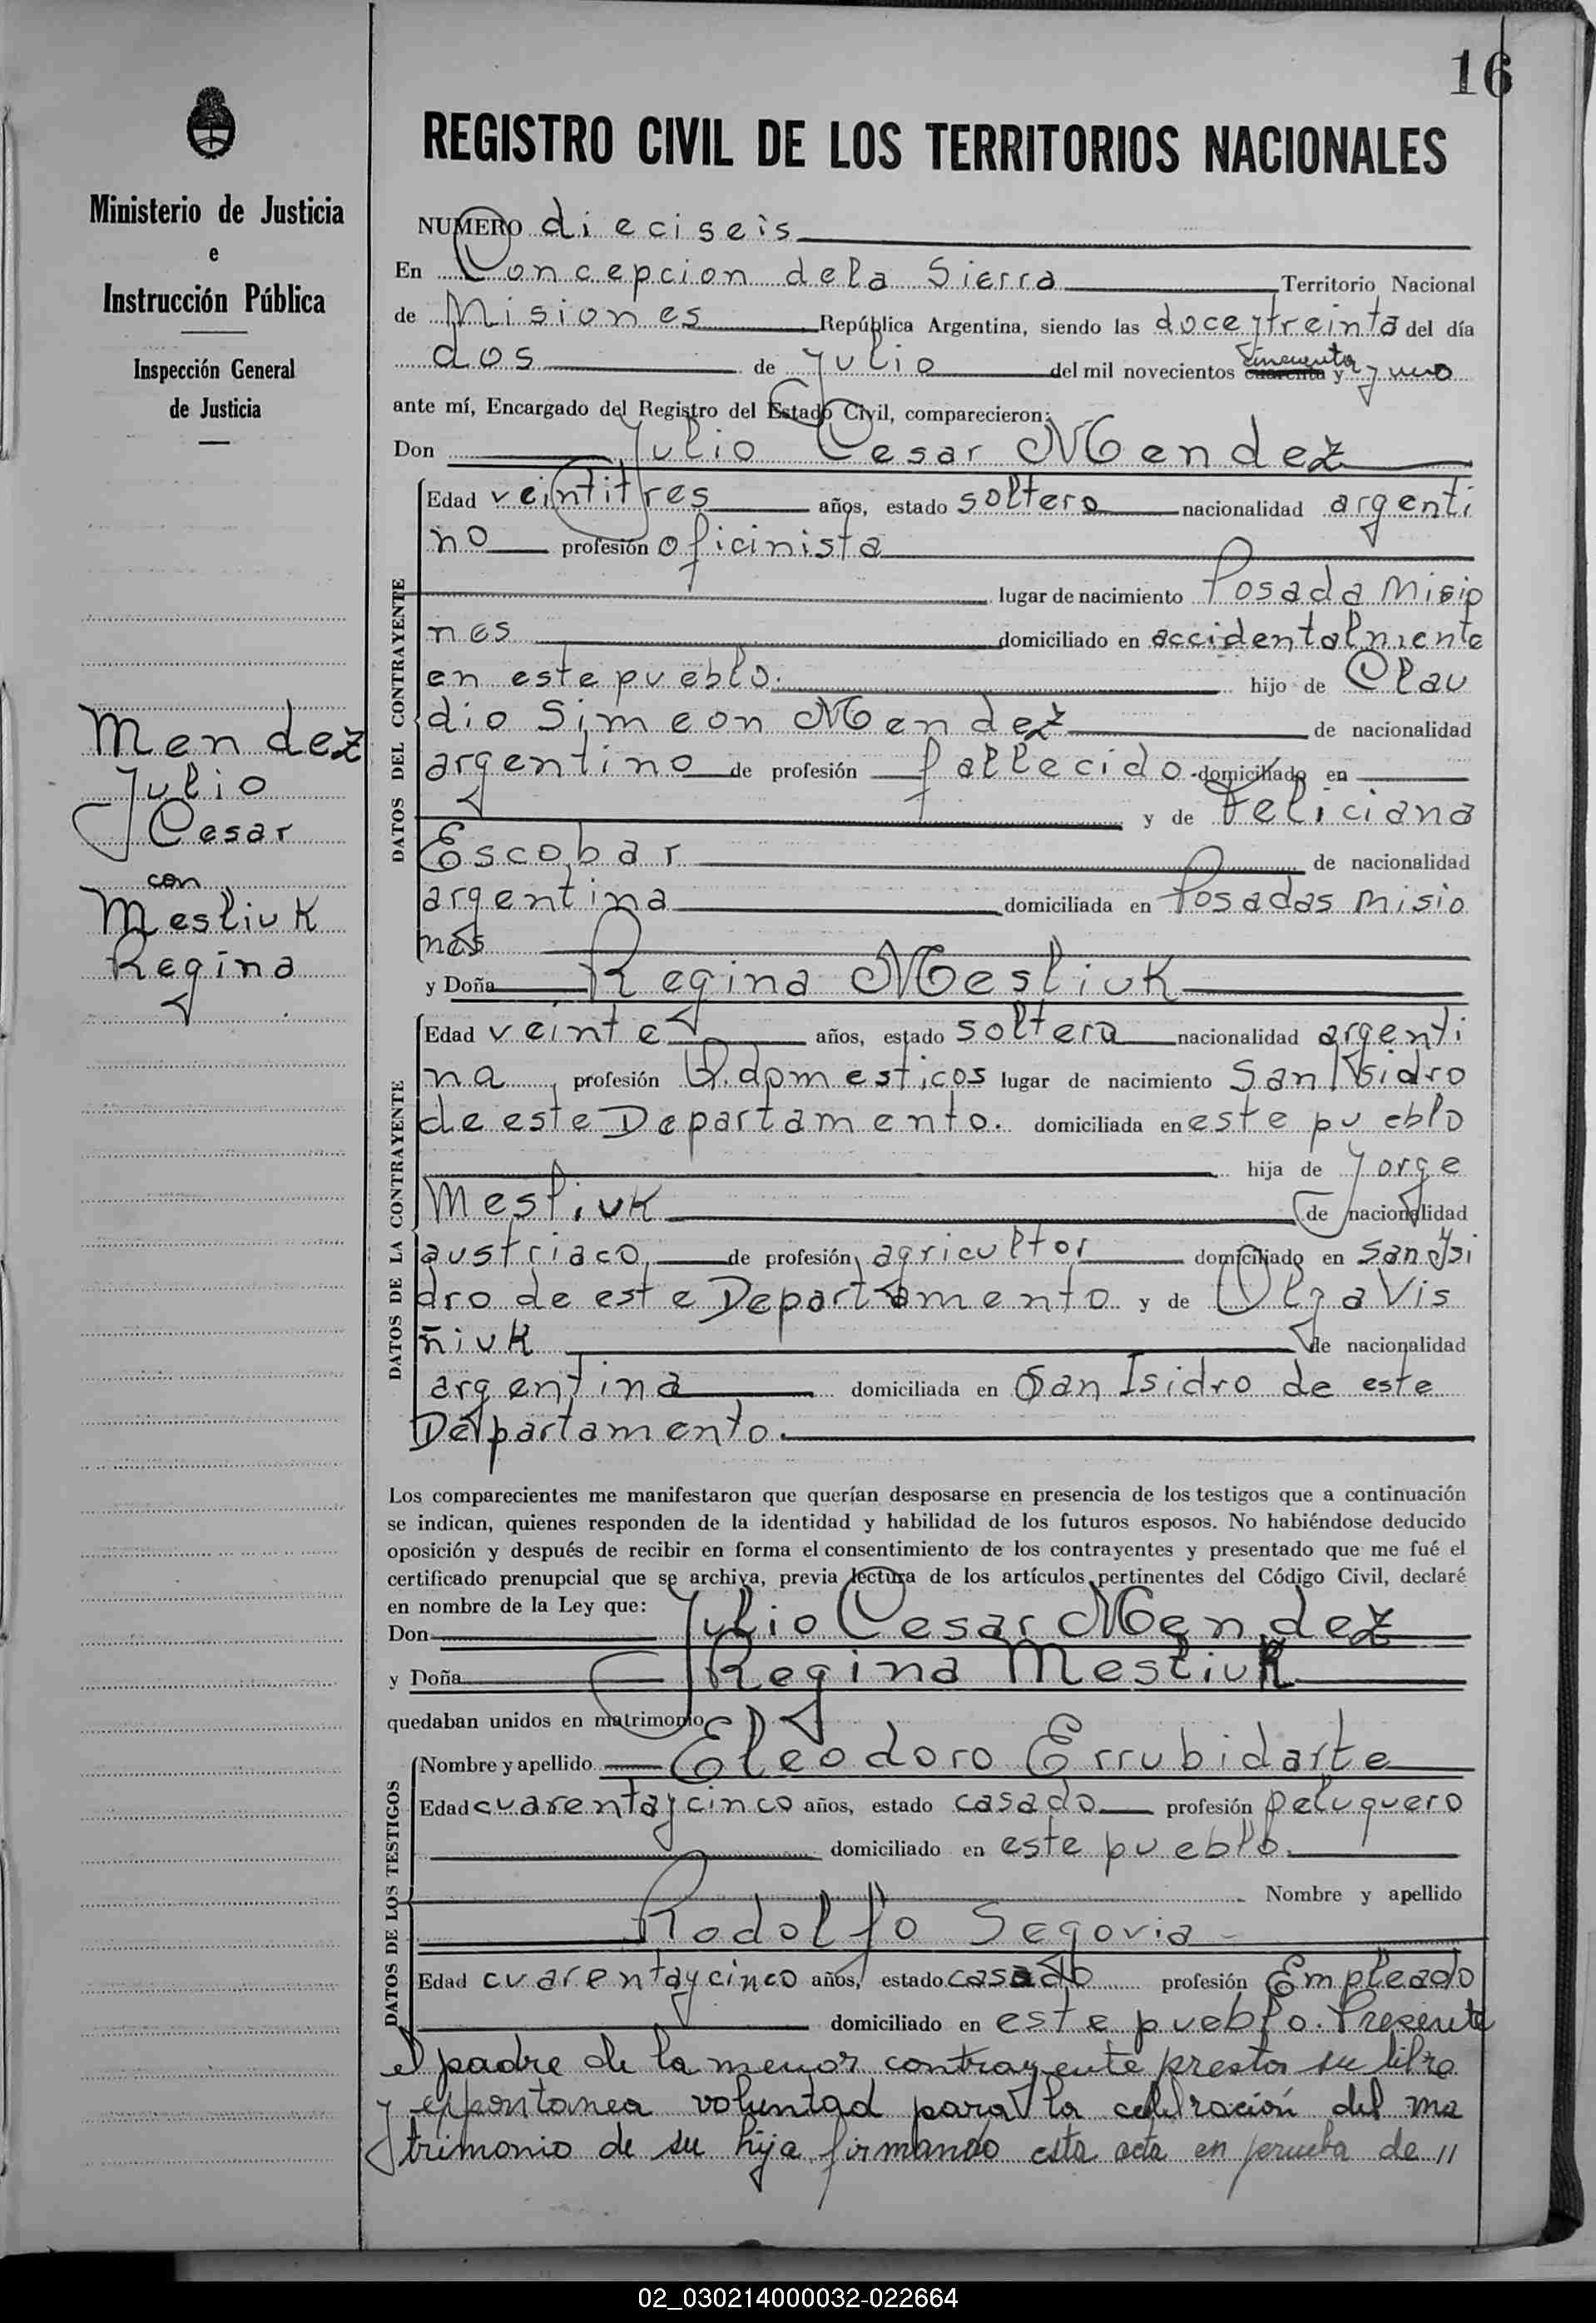 16
REGISTRO CIVIL DE LOS TERRITORIOS NACIONALES
Ministerio de Justicia
e
Instrucción Pública
Inspección General
de Justicia
Mendez
Julio
Cesar
con
Mesliuk
Regina
NUMERO dieciseis
En Concepcion dela Sierra Territorio Nacional
de Misiones República Argentina, siendo las doce y treinta del día
dos de Julio del mil novecientos cincuenta cuarenta y y uno
ante mí, Encargado del Registro del Estado Civil, comparecieron:
Don Julio Cesar Mendez
DATOS DEL CONTRAYENTE
Edad veintitres años, estado soltero nacionalidad argenti
no profesión oficinista
lugar de nacimiento Posada Misio
nes domiciliado en accidentalmente
en este pueblo. hijo de Clau
dio Simeon Mendez de nacionalidad
argentino de profesión fallecido domiciliado en
y de Feliciana
Escobar de nacionalidad
argentina domiciliada en Posadas Misio
nes
y Doña Regina Mesliuk
DATOS DE LA CONTRAYENTE
Edad veinte años, estado soltera nacionalidad argenti
na profesión Q. domesticos lugar de nacimiento San Isidro
de este Departamento. domiciliada en este pueblo
hija de Jorge
Mesliuk de nacionalidad
austriaco de profesión agricultor domiciliado en San Ysi
dro de este Departamento y de Olga Vis
ñiuk de nacionalidad
argentina domiciliada en San Isidro de este
Departamento.
Los comparecientes me manifestaron que querían desposarse en presencia de los testigos que a continuación
se indican, quienes responden de la identidad y habilidad de los futuros esposos. No habiéndose deducido
oposición y después de recibir en forma el consentimiento de los contrayentes y presentado que me fué el
certificado prenupcial que se archiva, previa lectura de los artículos pertinentes del Código Civil, declaré
en nombre de la Ley que:
Don Julio Cesar Mendez
y Doña Regina Mesliuk
quedaban unidos en matrimonio
DATOS DE LOS TESTIGOS
Nombre y apellido Eleodoro Errubidarte
Edad cuarenta y cinco años, estado casado profesión peluquero
domiciliado en este pueblo.
Nombre y apellido
Rodolfo Segovia
Edad cuarenta y cinco años, estado casado profesión Empleado
domiciliado en este pueblo. Presente
el padre de la menor contrayente presta su libre
y espontanea voluntad para la celebración del ma
trimonio de su hija firmando esta acta en prueba de //
02_030214000032-022664